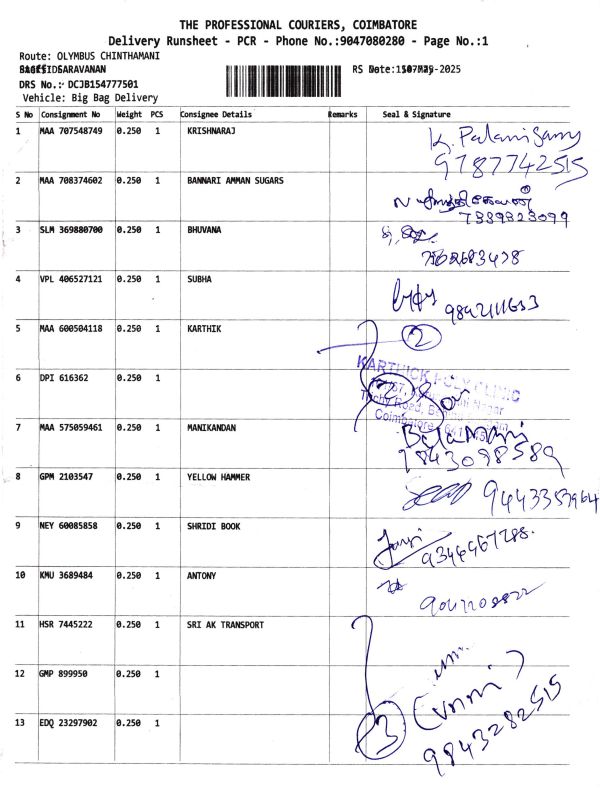 THE PROFESSIONAL COURIERS, COIMBATORE
Delivery Runsheet - PCR - Phone No.:9047080280 - Page No.:1
Route: OLYMBUS CHINTHAMANI
SARAVANAN
RS Date: -2025
DRS No.: DCJB154777501
Vehicle: Big Bag Delivery
S No Consignment No Weight PCS Consignee Details Remarks Seal & Signature
1 MAA 707548749 0.250 1 KRISHNARAJ K. Palanisamy
9787742515
2 MAA 708374602 0.250 1 BANNARI AMMAN SUGARS
7339323099
3 SLM 369880700 0.250 1 BHUVANA
4 VPL 406527121 0.250 1 SUBHA
5 MAA 600504118 0.250 1 KARTHIK 2
6 DPI 616362 0.250 1 KARTHICK POLY CLINIC
Nagar
Trichy Road,
Coimbatore
7 MAA 575059461 0.250 1 MANIKANDAN Balamani
9843098589
8 GPM 2103547 0.250 1 YELLOW HAMMER 9443353964
9 NEY 60085858 0.250 1 SHRIDI BOOK
9344467288.
10 KMU 3689484 0.250 1 ANTONY
11 HSR 7445222 0.250 1 SRI AK TRANSPORT
12 GMP 899950 0.250 1
13 EDQ 23297902 0.250 1 3
9843282515